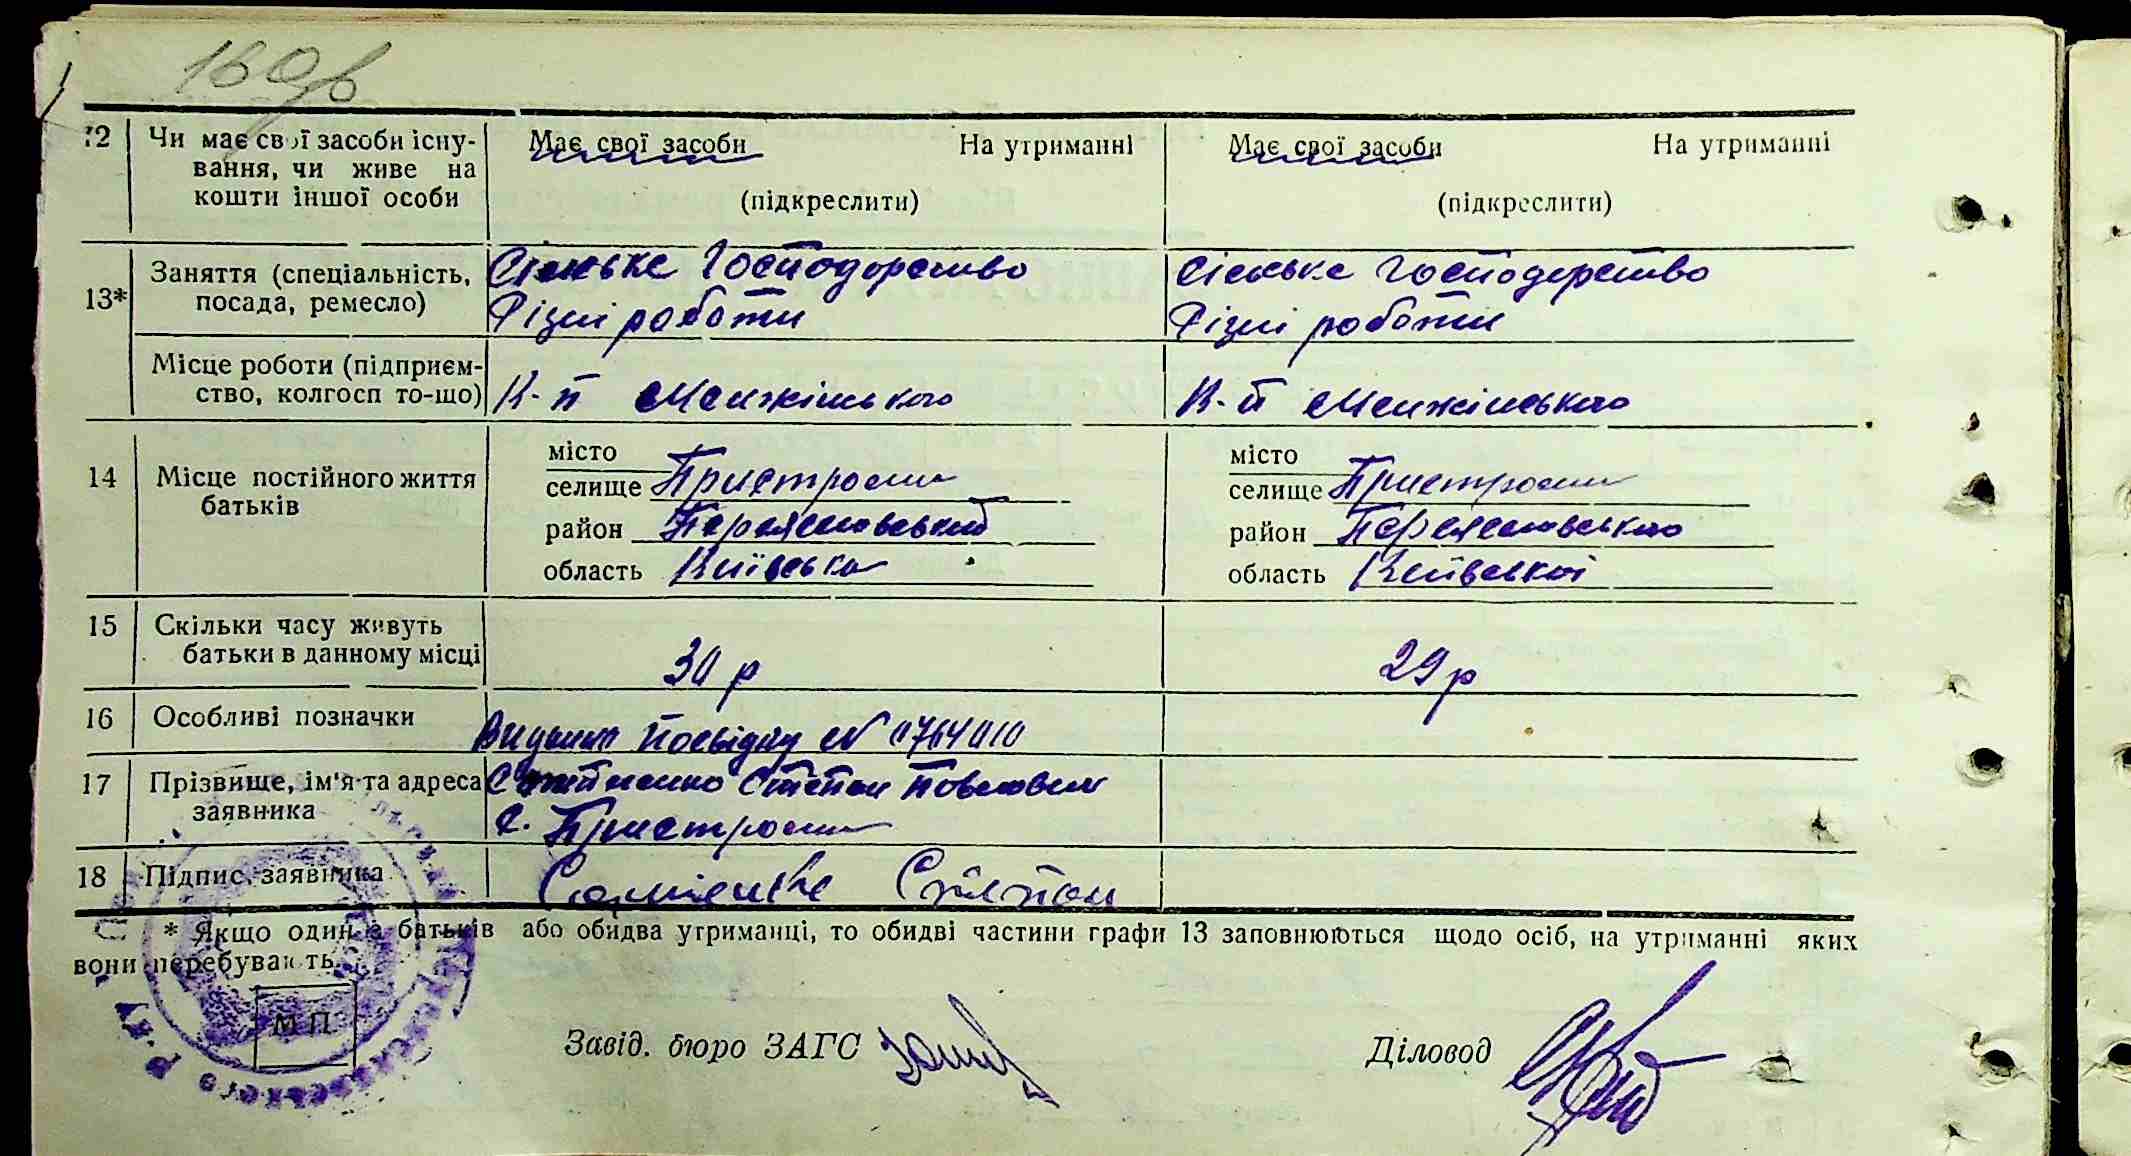 169 зв
12 Чи має свої засоби існу-
вання, чи живе на
кошти іншої особи
Має свої засоби На утриманні
(підкреслити)
Має свої засоби На утриманні
(підкреслити)
13* Заняття (спеціальність,
посада, ремесло)
Сільське Господарство
Різні роботи
Сільське Господарство
Різні роботи
Місце роботи (підприєм-
ство, колгосп то-що)
К-п Менжінського
К-п Менжінського
14 Місце постійного життя
батьків
місто
селище Пристроми
район Переяславський
область Київська
місто
селище Пристроми
район Переяславського
область Київської
15 Скільки часу живуть
батьки в данному місці
30 р
29 р
16 Особливі позначки
Видана посвідку № 0764010
17 Прізвище, ім'я та адреса
заявника
Степан Павлович
с. Пристроми
18 Підпис заявника
Степан
* Якщо один з батьків або обидва утриманці, то обидві частини графи 13 заповнюються щодо осіб, на утриманні яких
вони перебувають.
МП
Завід. бюро ЗАГС
Діловод